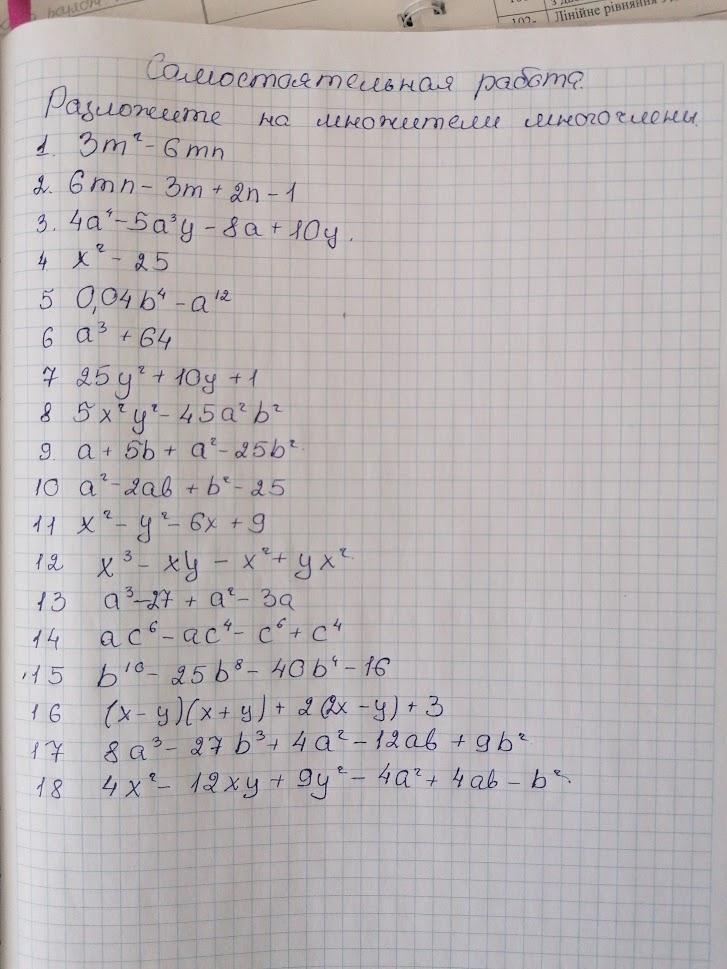 Лінійне рівняння
Самостоятельная работа.
Разложите на множители многочлены.
1. 3m² - 6mn
2. 6mn - 3m + 2n - 1
3. 4a⁴ - 5a³y - 8a + 10y.
4 x² - 25
5 0,04b⁴ - a¹²
6 a³ + 64
7 25y² + 10y + 1
8 5x²y² - 45a²b²
9. a + 5b + a² - 25b²
10 a² - 2ab + b² - 25
11 x² - y² - 6x + 9
12 x³ - xy - x² + yx²
13 a³ - 27 + a² - 3a
14 ac⁶ - ac⁴ - c⁶ + c⁴
15 b¹⁰ - 25b⁸ - 40b⁴ - 16
16 (x - y)(x + y) + 2(2x - y) + 3
17 8a³ - 27b³ + 4a² - 12ab + 9b²
18 4x² - 12xy + 9y² - 4a² + 4ab - b².